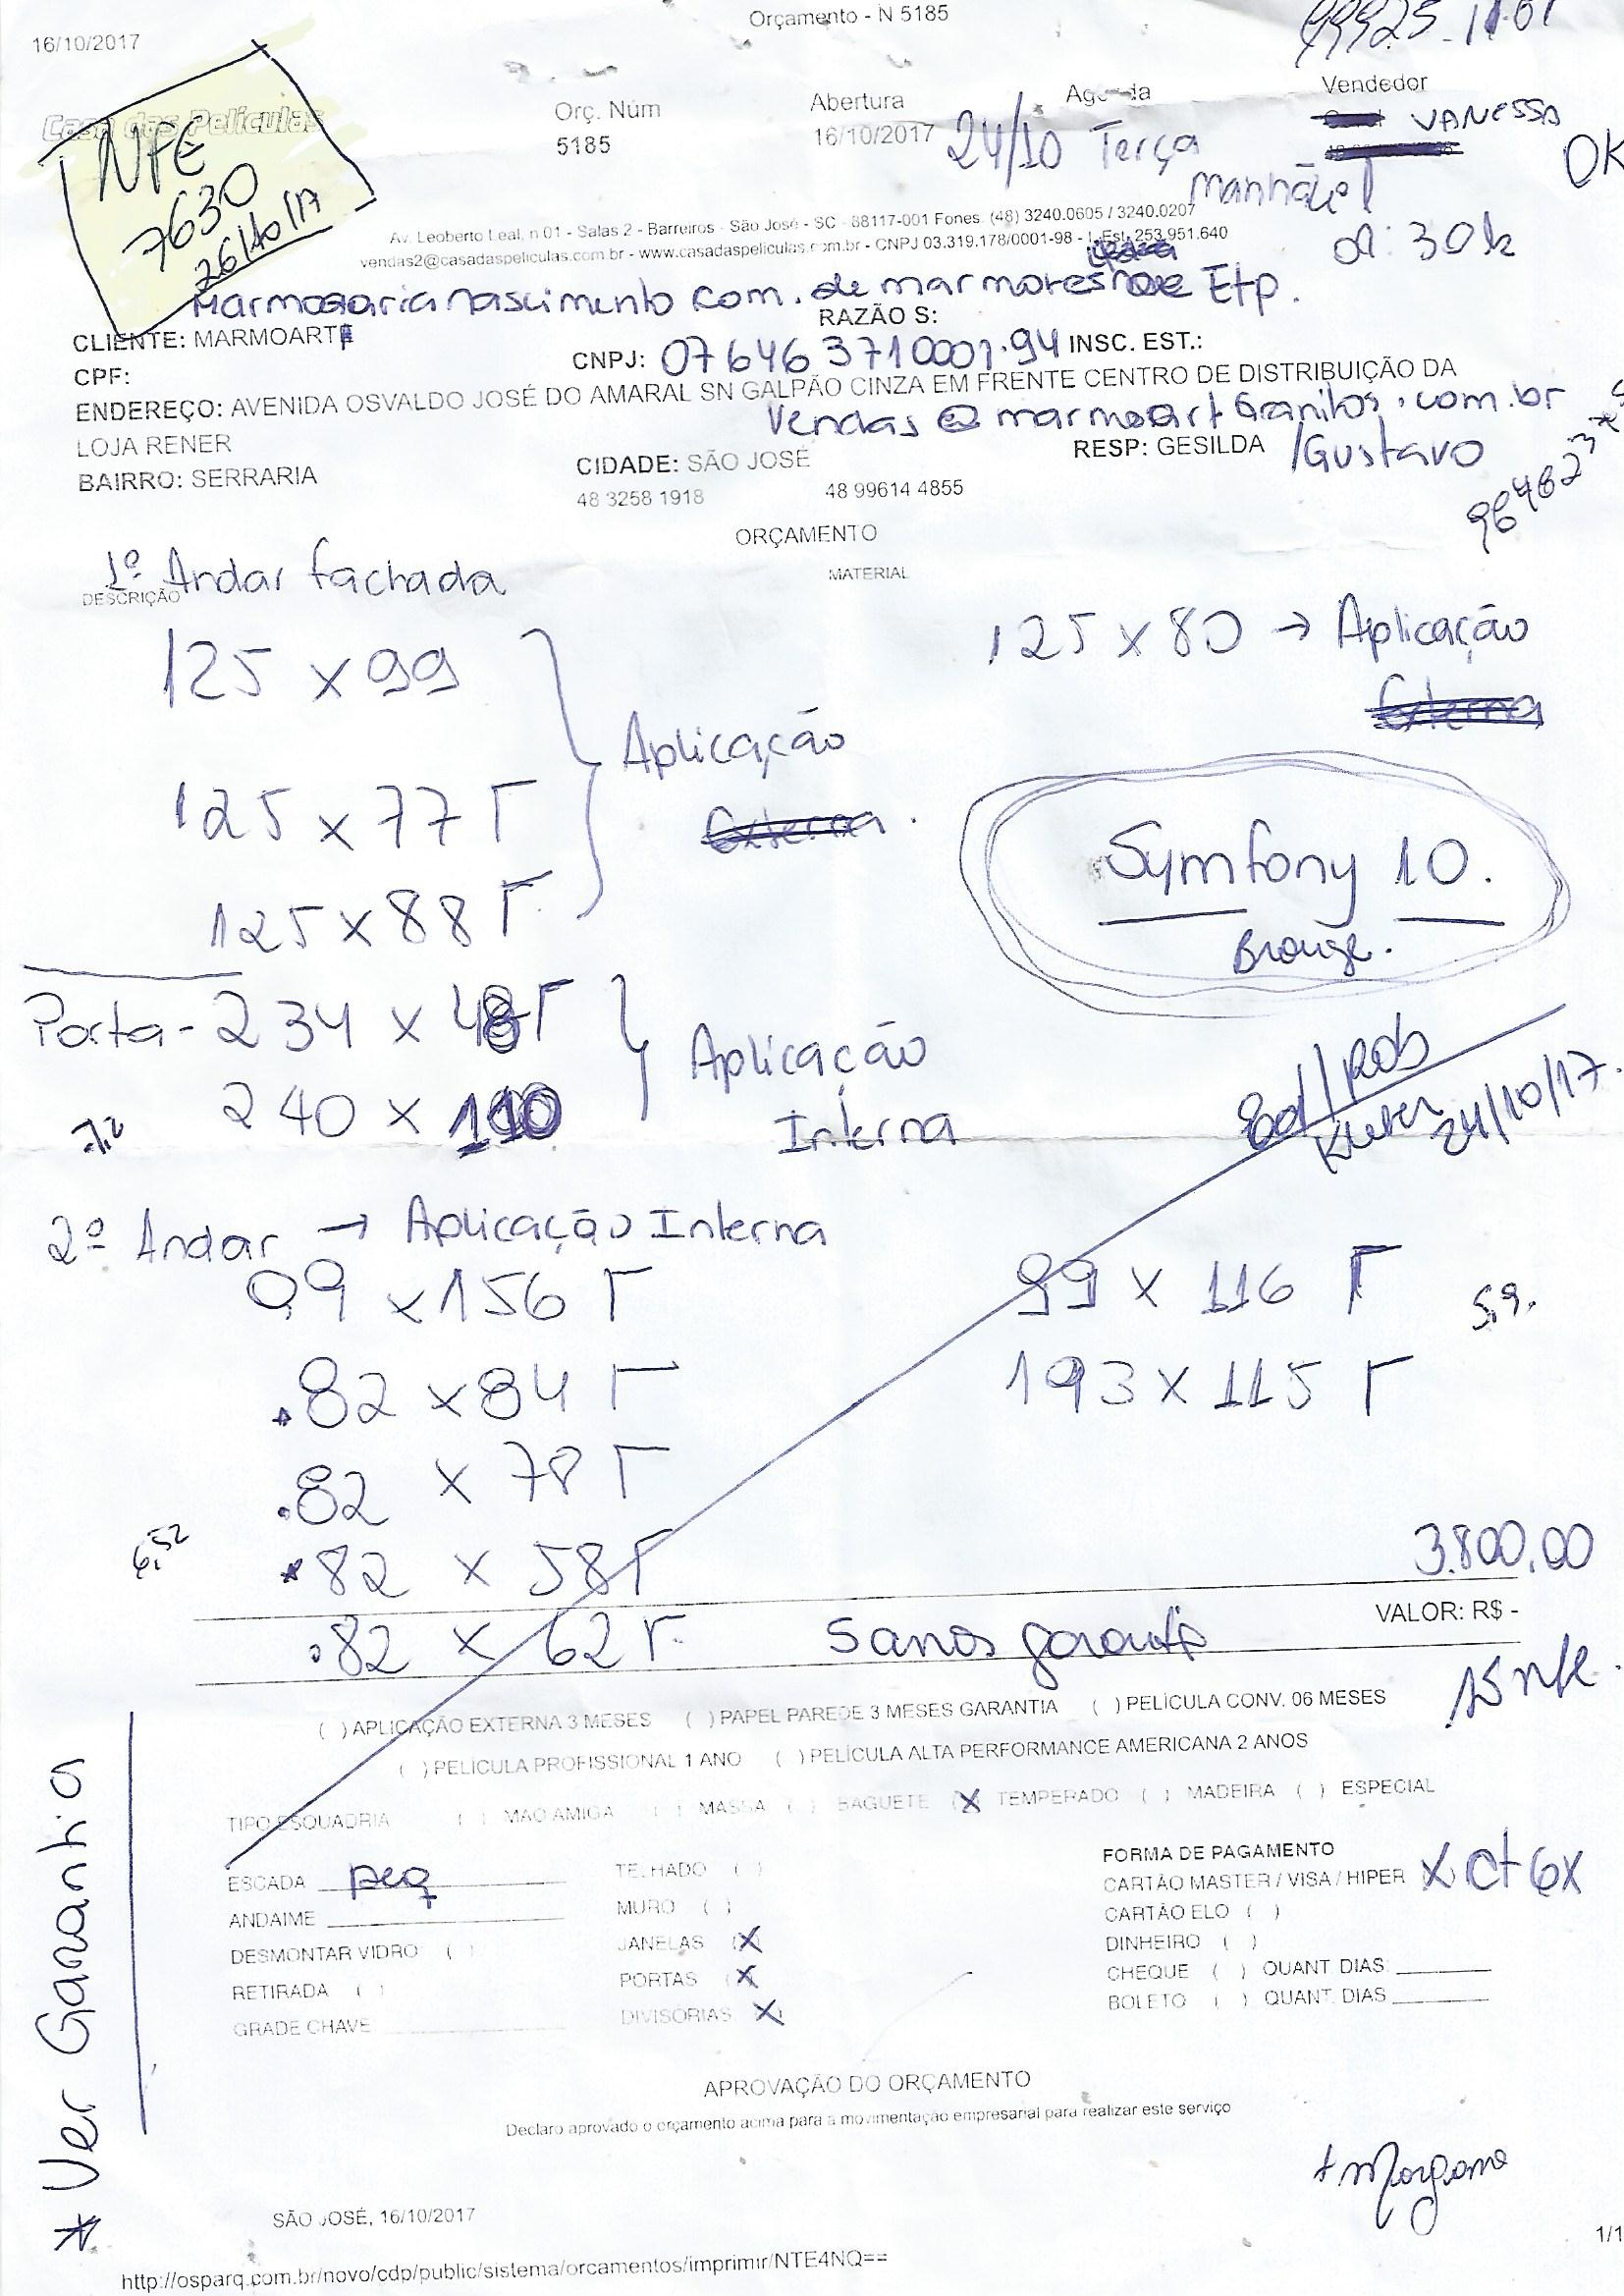 Orçamento - N 5185
16/10/2017
99925-1101
Casa das Películas
NFE
7630
26/10/17
Orç. Núm
5185
Abertura
16/10/2017
Agenda
24/10 Terça
manhã
Vendedor
VANESSA
OK
01:30h
Av. Leoberto Leal, n 01 - Salas 2 - Barreiros - São José - SC - 88117-001 Fones (48) 3240.0605 / 3240.0207
vendas2@casadaspeliculas.com.br - www.casadaspeliculas.com.br - CNPJ 03.319.178/0001-98 - I. Est. 253.951.640
Marmoraria nascimento com. de marmores Etp.
RAZÃO S:
CLIENTE: MARMOARTE
CPF:
CNPJ: 076463710001.94 INSC. EST.:
ENDEREÇO: AVENIDA OSVALDO JOSÉ DO AMARAL SN GALPÃO CINZA EM FRENTE CENTRO DE DISTRIBUIÇÃO DA
LOJA RENER
Vendas@marmoartGranitos.com.br
BAIRRO: SERRARIA
CIDADE: SÃO JOSÉ
RESP: GESILDA /Gustavo
48 3258 1918
48 99614 4855
ORÇAMENTO
1º Andar fachada
DESCRIÇÃO
MATERIAL
125 x 99
125 x 77 Γ
125 x 88 Γ
Aplicação
125 x 80 → Aplicação
Symfony 10.
Bronze.
Porta - 234 x 48 Γ
240 x 110
Aplicação
Interna
24/10/17.
2º Andar → Aplicação Interna
99 x 156 Γ
99 x 116 Γ
5,9.
.82 x 84 Γ
193 x 115 Γ
.82 x 78 Γ
6,52
.82 x 58 Γ
3.800,00
.82 x 62 Γ
5 anos garantia
VALOR: R$ -
( ) APLICAÇÃO EXTERNA 3 MESES ( ) PAPEL PAREDE 3 MESES GARANTIA ( ) PELÍCULA CONV. 06 MESES
( ) PELÍCULA PROFISSIONAL 1 ANO ( ) PELÍCULA ALTA PERFORMANCE AMERICANA 2 ANOS
TIPO ESQUADRIA ( ) MAO AMIGA ( ) MASSA ( ) BAGUETE (X) TEMPERADO ( ) MADEIRA ( ) ESPECIAL
ESCADA peq
ANDAIME
DESMONTAR VIDRO ( )
RETIRADA ( )
GRADE CHAVE
TELHADO ( )
MURO ( )
JANELAS (X)
PORTAS (X)
DIVISORIAS (X)
FORMA DE PAGAMENTO
CARTÃO MASTER / VISA / HIPER X ct 6x
CARTÃO ELO ( )
DINHEIRO ( )
CHEQUE ( ) QUANT DIAS:
BOLETO ( ) QUANT. DIAS
* Ver Garantia
APROVAÇÃO DO ORÇAMENTO
Declaro aprovado o orçamento acima para a movimentação empresarial para realizar este serviço
+ Morgana
SÃO JOSÉ, 16/10/2017
1/1
http://osparq.com.br/novo/cdp/public/sistema/orcamentos/imprimir/NTE4NQ==